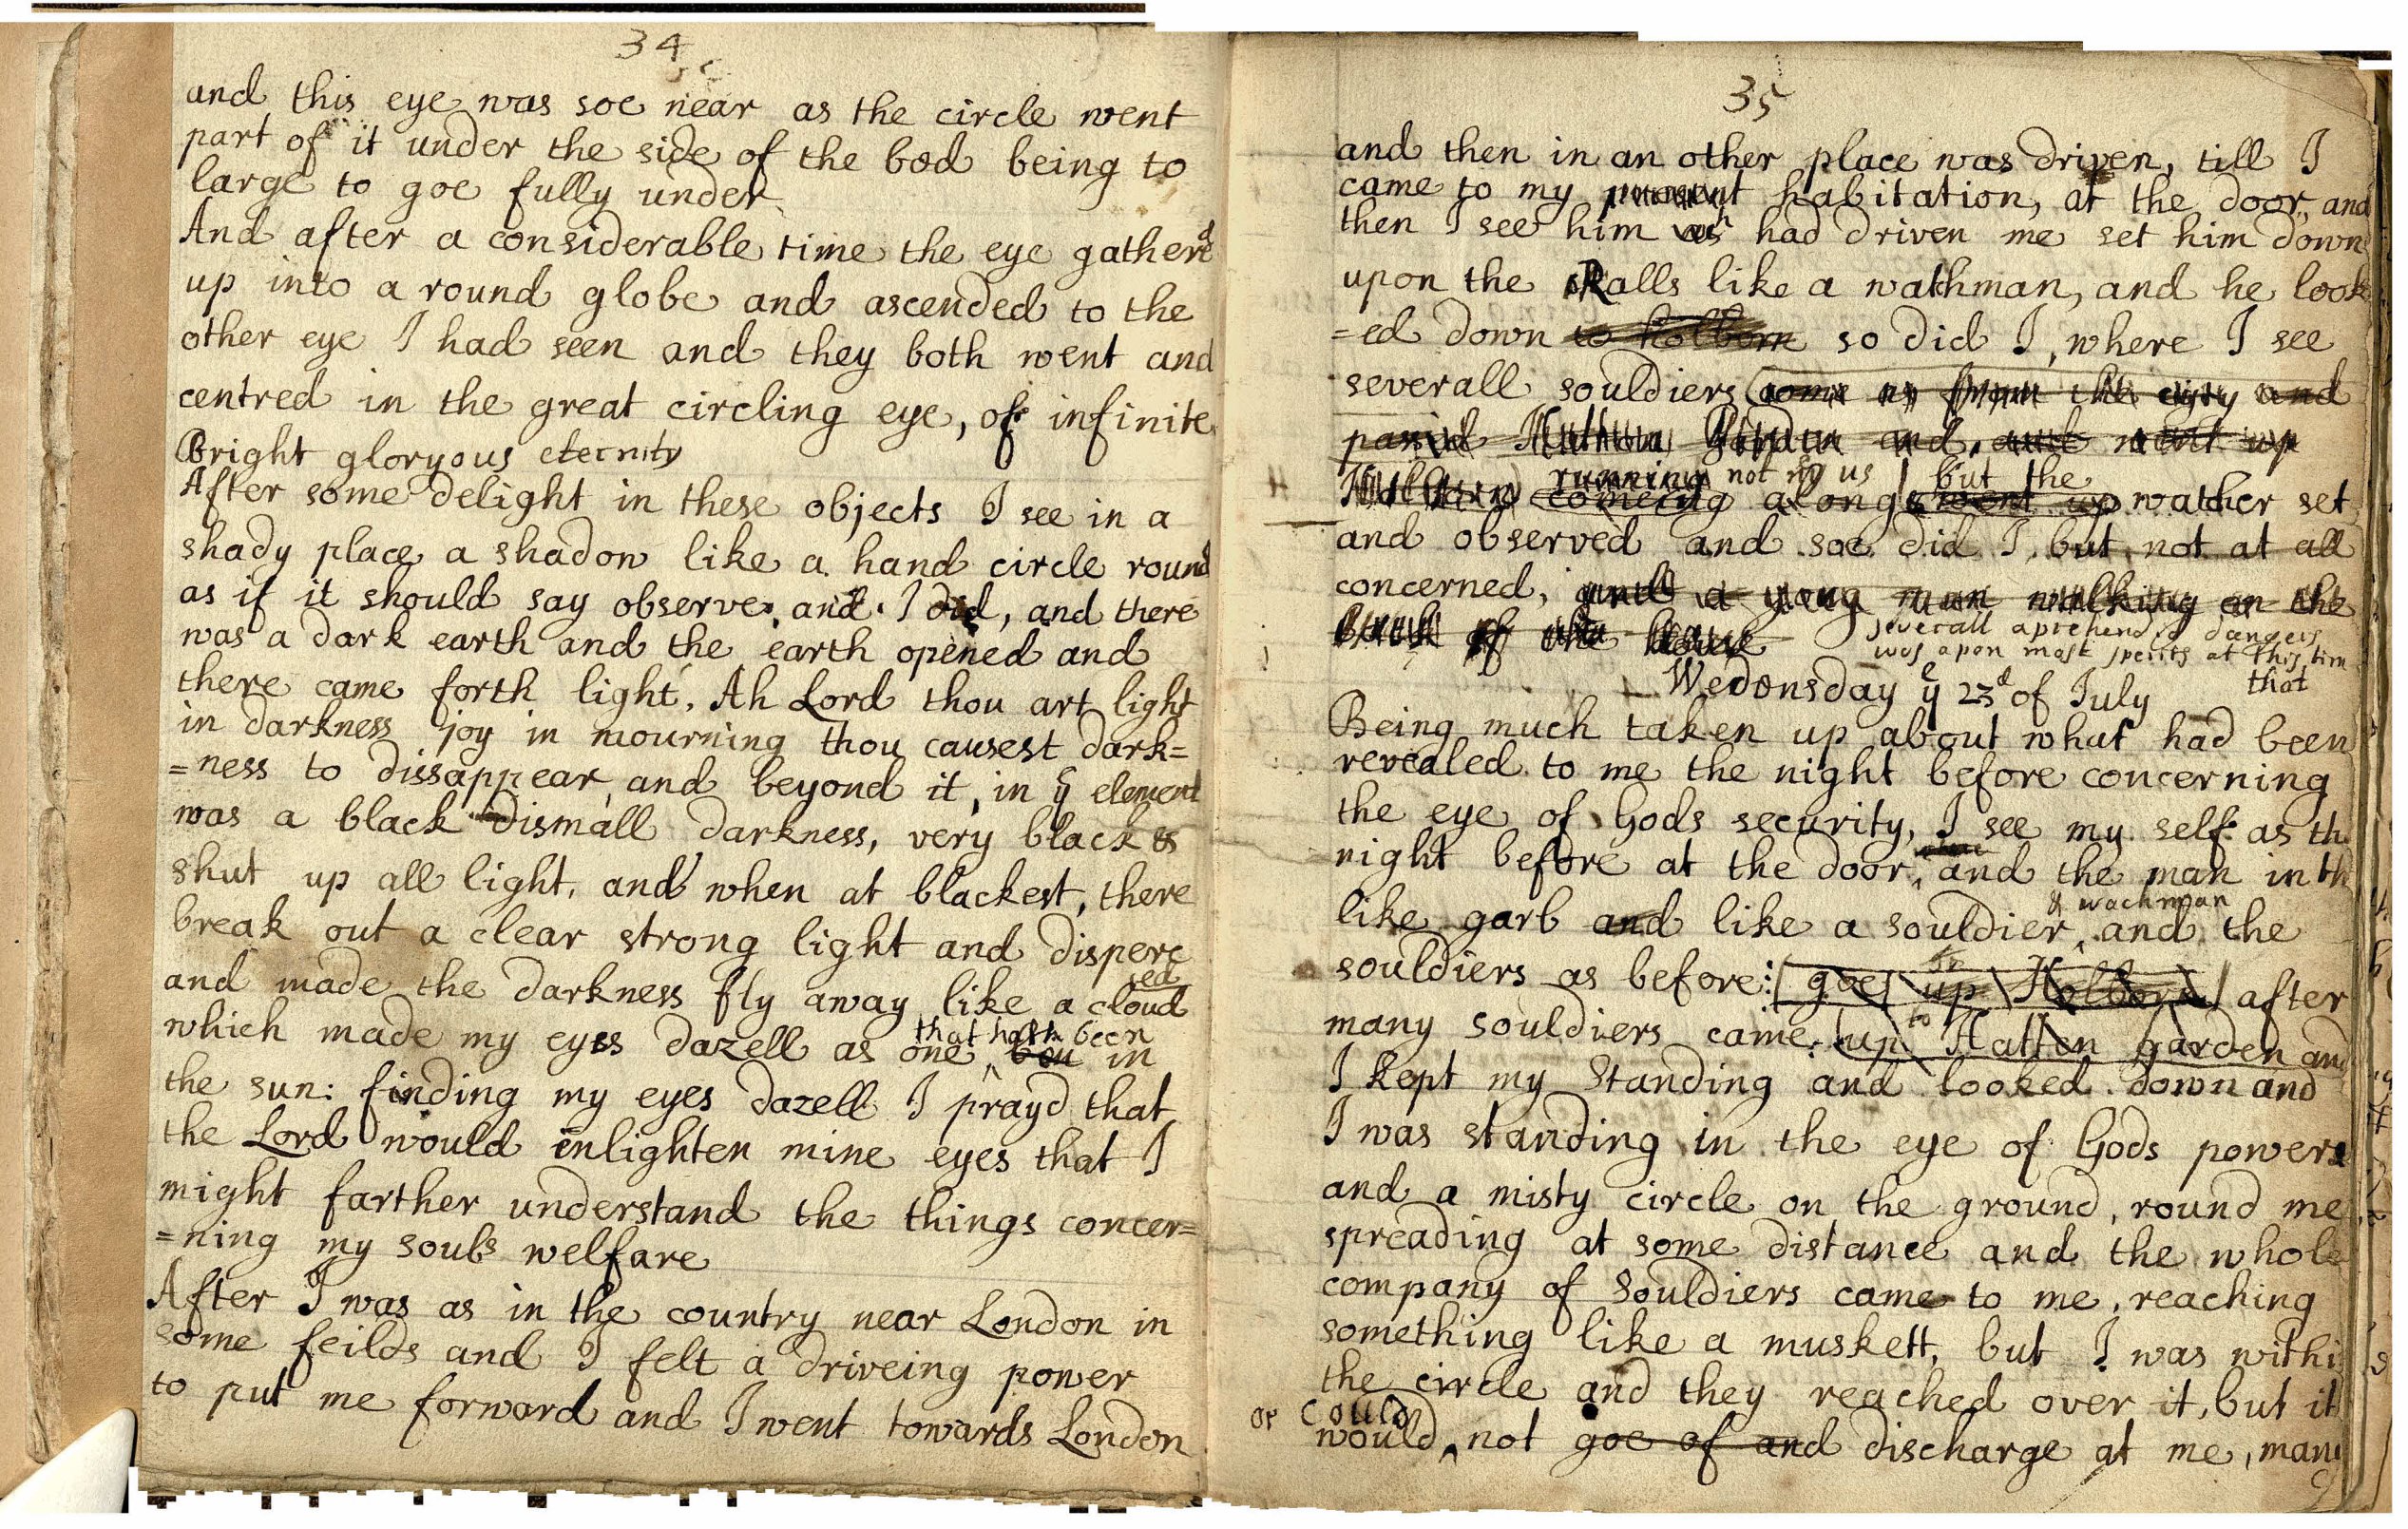 34
and this eye was soe near as the circle went
part of it under the side of the bed being to
large to goe fully under
And after a considerable time the eye gatherd
up into a round globe and ascended to the
other eye I had seen and they both went and
centred in the great circling eye, of infinite
Bright gloryous eternity
After some delight in these objects I see in a
shady place a shadow like a hand circle round
as if it should say observe, and I did, and there
was a dark earth and the earth opened and
there came forth light, Ah Lord thou art light
in darkness joy in mourning thou causest dark=
=ness to dissappear, and beyond it, in ye element
was a black dismall darkness, very black &
shut up all light, and when at blackest, there
break out a clear strong light and disperc
sed
and made the darkness fly away like a cloud
that hath been
which made my eyes dazell as one in
the sun: finding my eyes dazell I prayd that
the Lord would enlighten mine eyes that I
might farther understand the things concer=
=ning my souls welfare
After I was as in the country near London in
some feilds and I felt a driveing power
to put me forward and I went towards London
35
and then in an other place was driven, till I
came to my habitation, at the door, and
then I see him had driven me set him down
upon the Ralls like a wathman, and he look
=ed down to Holborn so did I, where I see
severall souldiers come as from the city and
passed Hatton Garden and, and went up
running not by us but the
Holborn comeing along went up watcher set
and observed and soe did I, but not at all
concerned, and a yong man walking on the
of the
severall aprehend d dangers
was apon most spirits at this tim
that
Wedonsday ye 23d of July
Being much taken up about what had been
revealed to me the night before concerning
the eye of Gods security, I see my self as th
night before at the door, and the man in th
& wachman
like garb and like a souldier, and the
souldiers as before: goe up Holborn after
to
many souldiers came: up Hatten garden and
I kept my standing and looked down and
I was standing in the eye of Gods powers
and a misty circle on the ground, round me
spreading at some distance and the whole
company of Souldiers came to me, reaching
something like a muskett, but I was withi
the circle and they reached over it, but it
or could
would not goe of and discharge at me, many